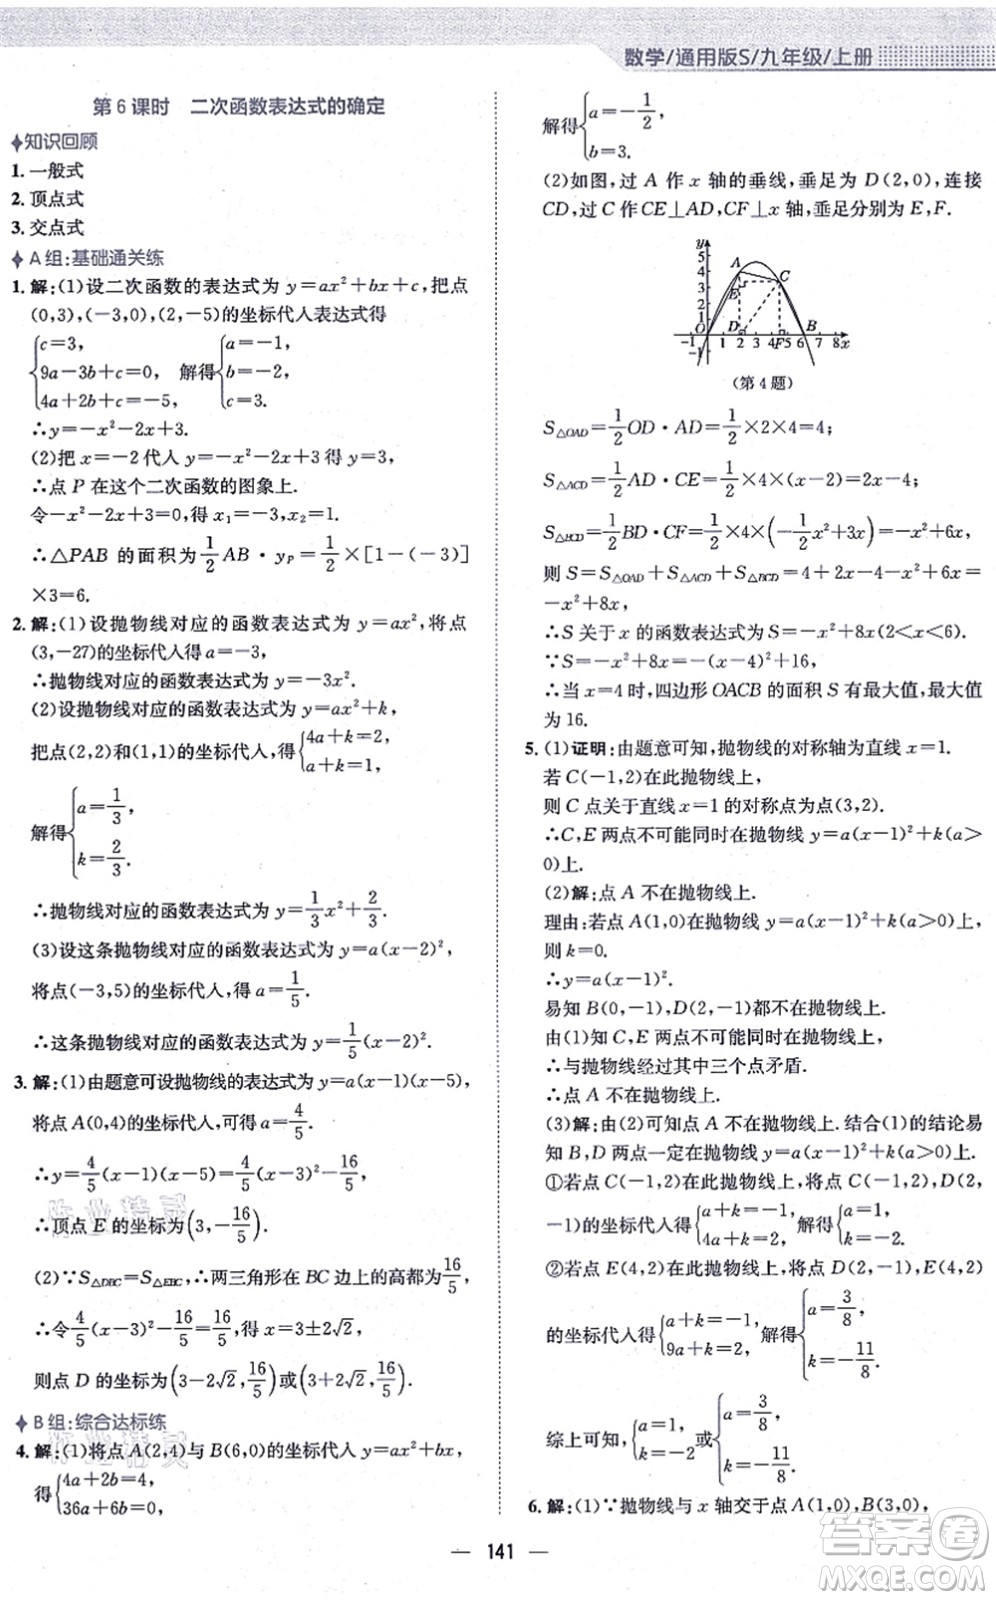 数学/通用版S/九年级/上册
第6课时 二次函数表达式的确定
知识回顾
1. 一般式
2. 顶点式
3. 交点式
A组:基础通关练
1. 解:(1)设二次函数的表达式为 y=ax²+bx+c,把点
(0,3),(-3,0),(2,-5)的坐标代入表达式得
{c=3, 9a-3b+c=0, 4a+2b+c=-5, 解得{a=-1, b=-2, c=3.
∴y=-x²-2x+3.
(2)把 x=-2代入 y=-x²-2x+3得 y=3,
∴点 P 在这个二次函数的图象上.
令-x²-2x+3=0,得 x₁=-3,x₂=1.
∴△PAB 的面积为1/2 AB·y_P=1/2×[1-(-3)]
×3=6.
2. 解:(1)设抛物线对应的函数表达式为 y=ax²,将点
(3,-27)的坐标代入得 a=-3,
∴抛物线对应的函数表达式为 y=-3x².
(2)设抛物线对应的函数表达式为 y=ax²+k,
把点(2,2)和(1,1)的坐标代入,得{4a+k=2, a+k=1,
解得{a=1/3, k=2/3.
∴抛物线对应的函数表达式为 y=1/3x²+2/3.
(3)设这条抛物线对应的函数表达式为 y=a(x-2)²,
将点(-3,5)的坐标代入,得 a=1/5.
∴这条抛物线对应的函数表达式为 y=1/5(x-2)².
3. 解:(1)由题意可设抛物线的表达式为 y=a(x-1)(x-5),
将点 A(0,4)的坐标代入,可得 a=4/5.
∴y=4/5(x-1)(x-5)=4/5(x-3)²-16/5,
∴顶点 E 的坐标为(3,-16/5).
(2)∵S△DBC=S△EBC,∴两三角形在 BC 边上的高都为16/5,
∴令4/5(x-3)²-16/5=16/5,得 x=3±2√2,
则点 D 的坐标为(3-2√2,16/5)或(3+2√2,16/5).
B组:综合达标练
4. 解:(1)将点 A(2,4)与 B(6,0)的坐标代入 y=ax²+bx,
得{4a+2b=4, 36a+6b=0,
解得{a=-1/2, b=3.
(2)如图,过 A 作 x 轴的垂线,垂足为 D(2,0),连接
CD,过 C 作 CE⊥AD,CF⊥x 轴,垂足分别为 E,F.
y
5
4
3
2
1
A
C
E
O
D
F
B
-1 1 2 3 4 5 6 7 8 x
-1
(第4题)
S△OAD=1/2 OD·AD=1/2×2×4=4;
S△ACD=1/2 AD·CE=1/2×4×(x-2)=2x-4;
S△BCD=1/2 BD·CF=1/2×4×(-1/2x²+3x)=-x²+6x,
则 S=S△OAD+S△ACD+S△BCD=4+2x-4-x²+6x=
-x²+8x,
∴S 关于 x 的函数表达式为 S=-x²+8x(2<x<6).
∵S=-x²+8x=-(x-4)²+16,
∴当 x=4时,四边形 OACB 的面积 S 有最大值,最大值
为16.
5. (1)证明:由题意可知,抛物线的对称轴为直线 x=1.
若 C(-1,2)在此抛物线上,
则 C 点关于直线 x=1的对称点为点(3,2).
∴C,E 两点不可能同时在抛物线 y=a(x-1)²+k(a>
0)上.
(2)解:点 A 不在抛物线上.
理由:若点 A(1,0)在抛物线 y=a(x-1)²+k(a>0)上,
则 k=0.
∴y=a(x-1)².
易知 B(0,-1),D(2,-1)都不在抛物线上.
由(1)知 C,E 两点不可能同时在抛物线上,
∴与抛物线经过其中三个点矛盾.
∴点 A 不在抛物线上.
(3)解:由(2)可知点 A 不在抛物线上.结合(1)的结论易
知 B,D 两点一定在抛物线上.
①若点 C 在此抛物线上,将点 C(-1,2),D(2,
-1)的坐标代入得{a+k=-1, 4a+k=2, 解得{a=1, k=-2.
②若点 E 在此抛物线上,将点 D(2,-1),E(4,2)
的坐标代入得{a+k=-1, 9a+k=2, 解得{a=3/8, k=-11/8.
综上可知,{a=1, k=-2 或{a=3/8, k=-11/8.
6. 解:(1)∵抛物线与 x 轴交于点 A(1,0),B(3,0),
141
答案圈
MXQE.COM